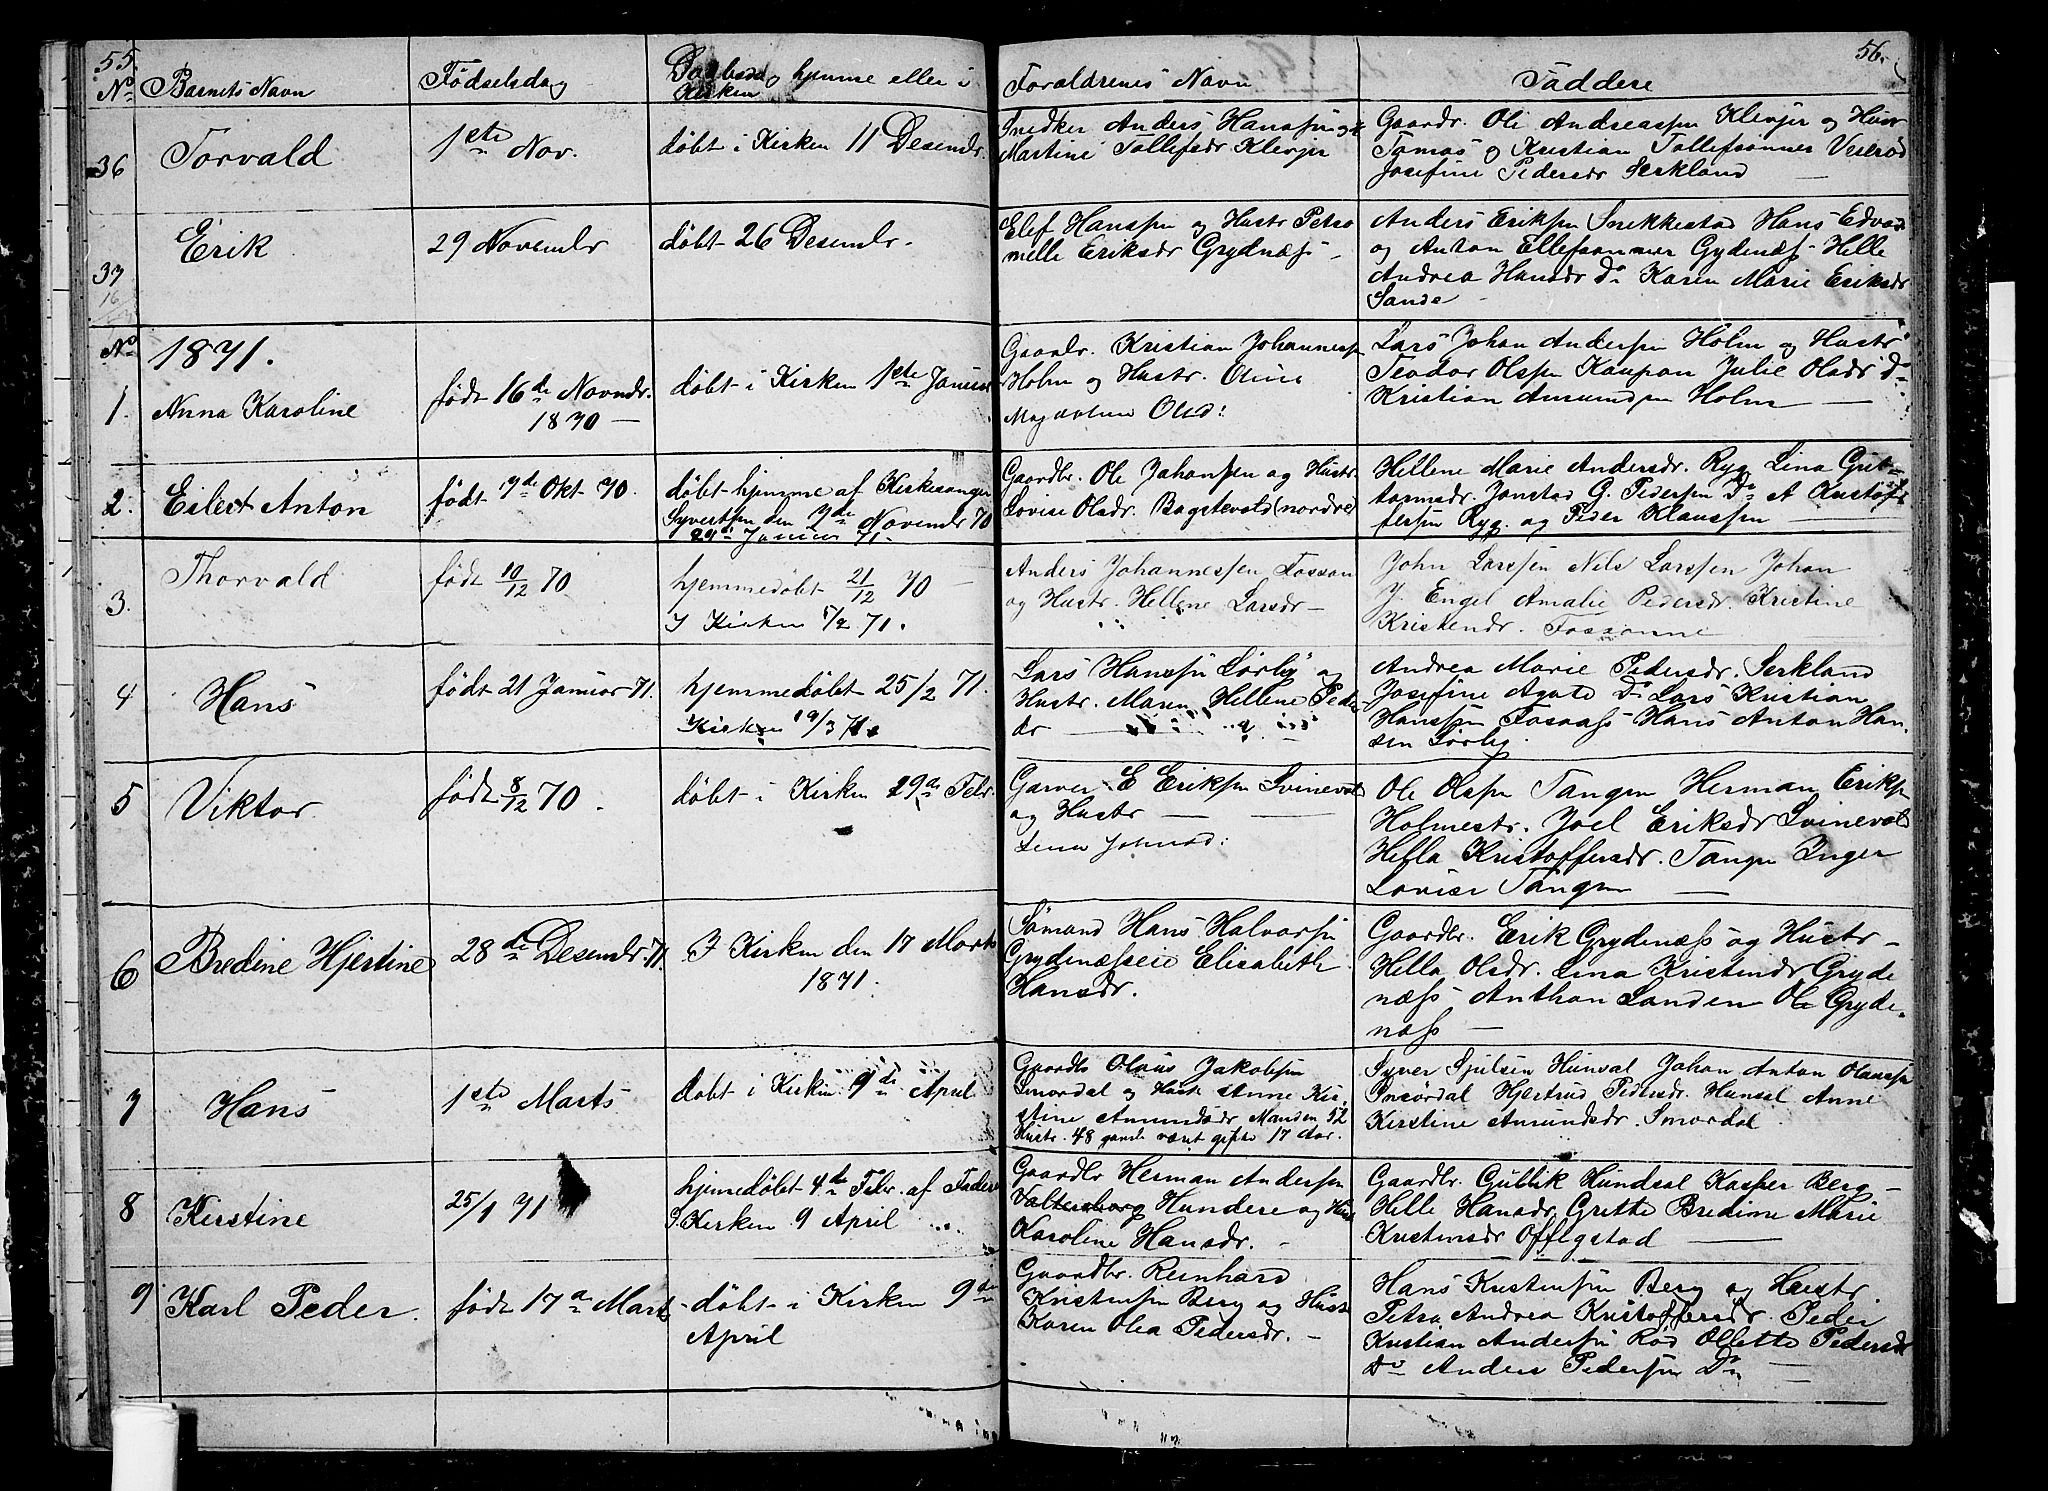 55.
56.
No Barnets Navn
Fødselsdag
Daabsdag hjemme eller i
Kirken
Forældrenes Navn
Faddere
36
Torvald
1ste Nov.
døbt i Kirken 11 Desembr.
Snedker Anders Hanssen og
Martine Tollefsdr Klevjer
Gaardr. Oli Andreassen Klevjer og Hustr
Tomas og Kristian Tollefsønner Veslerød
Josefine Pedersdr Serkland
37
16
Erik
29 Novembr
døbt 26 Desembr.
Elef Hanssen og Hustr Petro
nelle Eriksdr Grydnæs
Anders Eriksen Snekkestad Hans Edvar
og Anton Ellefsønner Gydenæss Helle
Andrea Hansdr Do Karen Marie Eriksdr
Sande
No
1871.
1.
Anna Karoline
født 16de Novmbr.
1870
døbt i Kirken 1ste Januar
Gaardr. Kristian Johannessen
Holm og Hustr. Oline
Magdalena Olsd:
Lars Johan Andersen Holm og Hustr
Teodor Olsen Kaupan Julie Olsdr Do
Kristian Amundsen Holm
2.
Eilert Anton
født 7de Okt 70.
døbt hjemme af Kirkesanger
Syvertsen den 7de Novembr 70
29de Januar 71.
Gaardbr. Ole Johansen og Hustr.
Lovise Olsdr. Bagstevold (nordre)
Hellene Marie Andersdr. Ryg Lina Gut-
tormsdr. Jonstad G. Pedersen Do A Kristof
fersen Ryg. og Peder Klaussen
3.
Thorvald
født 10/12 70
hjemmedøbt 21/12 70
I Kirken 5/2 71.
Anders Johannessen Fossan
og Hustr. Hellene Larsdr
John Larssen Nils Larssen Johan
J. Engel Amalie Pedersdr. Kristine
Kristendr. Fossanne
4
Hans
født 21 Januar 71.
hjemmedøbt 25/2 71.
Kirken 19/3 71.
Lars Hanssen Sørby og
Hustr. Maren Hellene Peder
dr
Andrea Marie Pedersdr. Serkland
Josefine Agate Do Lars Kristian
Hanssen Fosaas Hans Anton Han
sen Sørby.
5
Viktor
født 8/12 70.
døbt i Kirken 29de Febr.
Garver E Eriksen Svinevold
og Hustr
Lena Johnsd:
Ole Olsen Tangen Herman Eriksen
Holmestr. Joel Eriksdr Svinevold
Hella Kristoffersdr. Tangen Inger
Lovise Tangen
6
Bredine Hjertine
28de Desembr 71.
I Kirken den 17 Marts
1871.
Sømand Hans Halvorsen
Grydenæsseie Elisabeth
Hansdr.
Gaardbr. Erik Grydenæss og Hustr
Hella Olsdr. Lina Kristendr Gryde
næss Anthon Sanden Ole Gryde.
næss
7
Hans
1ste Marts
døbt i Kirken 9de April
Gaardb Olaus Jakobsen
Smørdal og Hustr Anne Kir
stine Amundsdr Manden 52
Hustr. 48 gamle været gifte 17 Aar.
Syver Sjulsen Hunsal Johan Anton Olaussen
Smørdal Hjertrud Pedersdr. Hunsal Anne
Kirstine Amundsdr. Smørdal.
8
Kirstine
25/1 71
hjemedøbt 4de Febr. af Fader
I Kirken 9 April
Gaardbr Herman Andersen
Valtersborg Hundere og Hust
Karoline Hansdr.
Gaardbr. Gullik Hundsal Kasper Berg
Helle Hansdr. Grette Bredine Marie
Kristensdr Offigstad
9
Karl Peder.
født 17de Marts
døbt i Kirken 9de
April
Gaardbr. Reinhard
Kristensen Berg og Hustr
Karen Olea Pedersdr.
Hans Kristensen Berg og Hustr.
Petra Andrea Kristoffersdr. Peder
Kristian Andersen Rød Ollette Pedersdr
Do Anders Pedersen Do